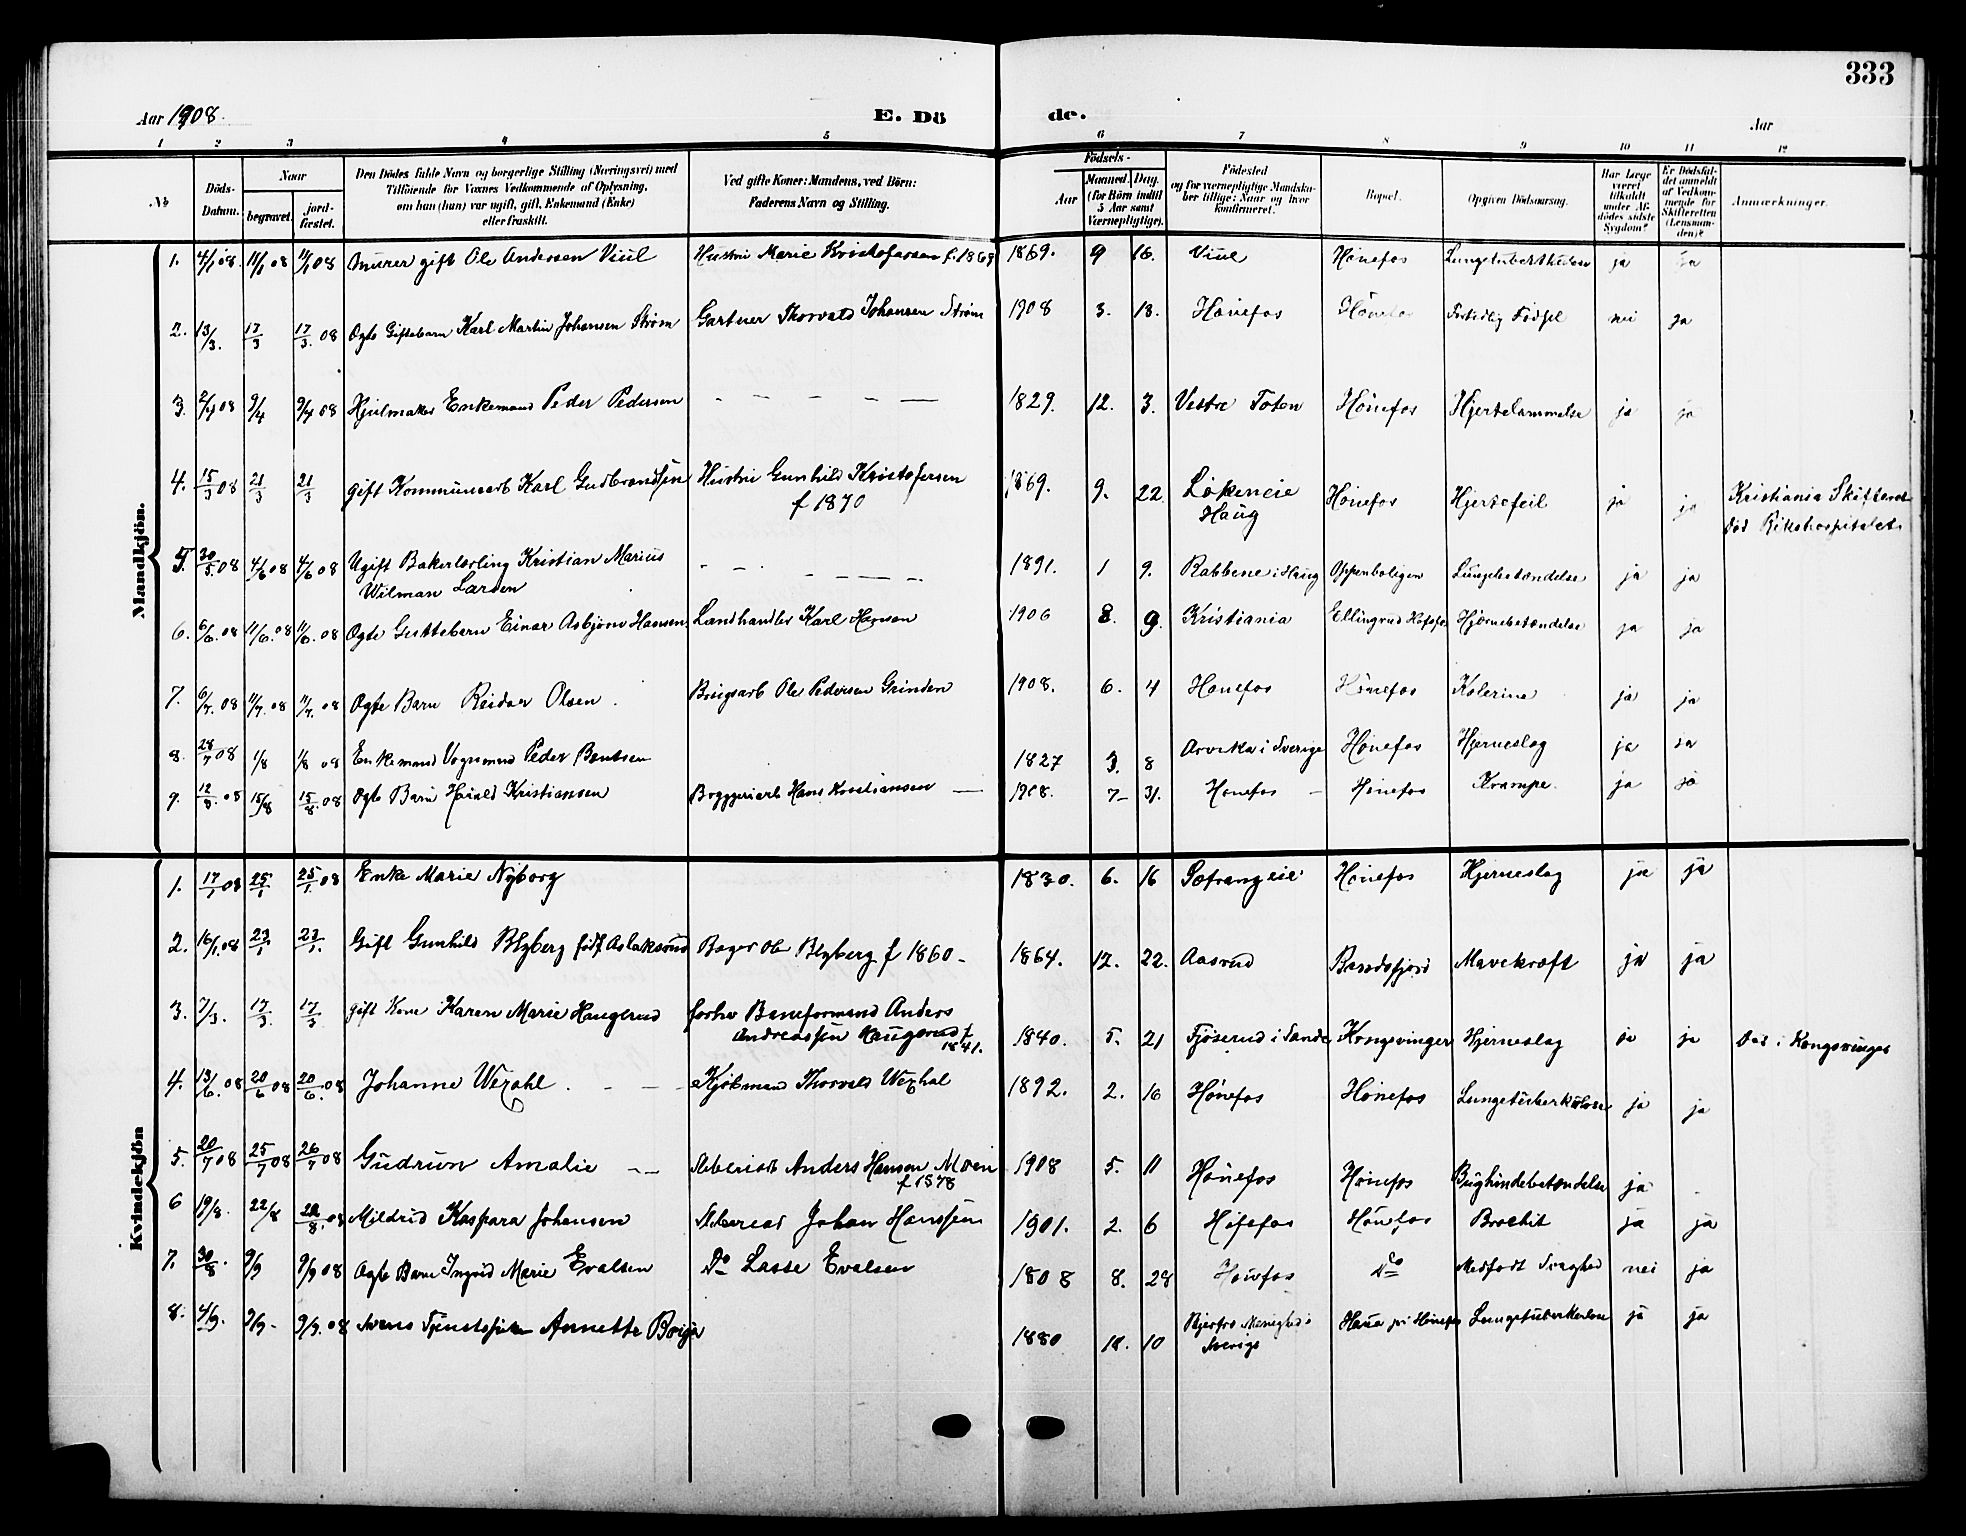 333
Aar 1908.
E. Dö de.
Aar
1 2 3 4 5 6 7 8 9 10 11 12
№
Döds-Datum.
Naar
begravet.
jord-fæstet.
Den Dödes fulde Navn og borgerlige Stilling (Næringsvei) med
Tilföiende for Voxnes Vedkommende af Oplysning,
om han (hun) var ugift, gift, Enkemand (Enke)
eller fraskilt.
Ved gifte Koner: Mandens, ved Börn:
Faderens Navn og Stilling.
Födsels-
Aar
Maaned.
Dag.
(for Börn indtil
5 Aar samt
Værnepligtige).
Födested
og for værnepligtige Mandska-
ber tillige: Naar og hvor
konfirmeret.
Bopæl.
Opgiven Dödsaarsag.
Har Læge
været
tilkaldt
under Af-
dödes sidste
Sygdom?
Er Dödsfal-
det anmeldt
af Vedkom-
mende for
Skifteretten
(Lensman-
den)?
Anmærkninger.
Mandkjön.
1. 4/1 08. 11/1 08 11/1 08 Murer gift Ole Andersen Viul Hustru Marie Kristofersen f. 1869 1869. 9 16. Viul Hönefos Lungetuberkulose ja ja
2. 13/3. 17/3 17/3. 08 Ægte Guttebarn Karl Martin Johansen Strøm Gartner Thorvald Johansen Strøm 1908 3. 13. Hönefos Hönefos Fortidlig Födsel nei ja
3. 2/4 08 9/4 9/4 08 Hjulmaker Enkemand Peder Pedersen - - - - - 1829. 12. 3. Vestre Toten Hönefos Hjertelammelse ja ja
4. 15/3 08 21/3 21/3 gift Kommunearb Karl Gudbrandsen Hustru Gunhild Kristofersen
f 1870 1869. 9. 22 Lökeneie
Haug Hönefos Hjertefeil ja ja Kristiania Skifteret
Död Rikshospitalet
5. 30/5. 08 4/6 08 4/6 08 Ugift Bakerlærling Kristian Marius
Wilman Larsen - - - - - 1891. 1 9. Rabbene i Haug Oppenboligen Lungebetændelse ja ja
6. 6/6. 08 11/6. 08 11/6. 08 Ægte Guttebarn Einar Asbjørn Hansen Landhandler Karl Hansen 1906 8. 9. Kristiania Ellingrud Höfos Hjernebetændelse ja ja
7. 6/7. 08 11/7. 08 11/7. 08 Ægte Barn Reidar Olsen. Brugsarb Ole Pedersen Grinden 1908. 6. 4 Hönefos Hönefos Kolerine ja ja
8. 28/7 08 1/8 1/8 08 Enkemand Vognmand Peder Bentsen 1827 3. 8 Arvika i Sverige Hönefos Hjerneslag ja ja
9. 12/8. 08 15/8 15/8. 08 Ægte Barn Harald Kristiansen Bryggeriarb Hans Kristiansen — 1908. 7- 31. Hönefos - Hönefos Krampe. ja ja
Kvindekjön
1. 17/1 08 25/1 25/1. 08 Enke Marie Nyborg 1830. 6. 16 Sotrangeie Hönefos Hjerneslag ja ja
2. 16/1. 08 23/1. 23/1. Gift Gunhild Blyberg født Aslaksrud Bager Ole Blyberg f 1860- 1864. 12. 22. Aasrud Randsfjord Mavekræft ja ja
3. 7/3. 17/3. 17/3 gift Kone Karen Marie Haugerud forhv Baneformand Anders
Andreassen Haugerud f
1841. 1840. 5. 21 Fjöserud i Sande Kongsvinger Hjerneslag ja ja Död i Kongsvinger
4. 13/6. 08 20/6 08 20/6. 08 Johanne Wexahl. - - - Kjöbmand Thorvald Wexhal 1892. 2. 16 Hönefos Hönefos Lungetuberkulose ja ja
5. 20/7 08 25/7 08 26/7 08 Gudrun Amalie -- Sliberiarb Anders Hansen Moen
f 1878 1908 5. 11 Hönefos Hönefos Bughindebetændelse ja -
6 19/8. 22/8 22/8. 08 Mildrid Kaspara Johansen Sliberiarb Johan Hanssen 1901. 2. 6 Höfefos Hönefos Brochit ja ja
7. 30/8. 9/9 9/9 08 Ægte Barn Ingrid Marie Evalsen Do Lasse Evalsen 1808 8. 28 Hönefos Do Medfödt Svaghed nei ja
8. 4/9. 9/9- 9/9. 08 Svensk Annette 1880 10 Menighed i
Sverige Hönefos Lungetuberkulose ja ja